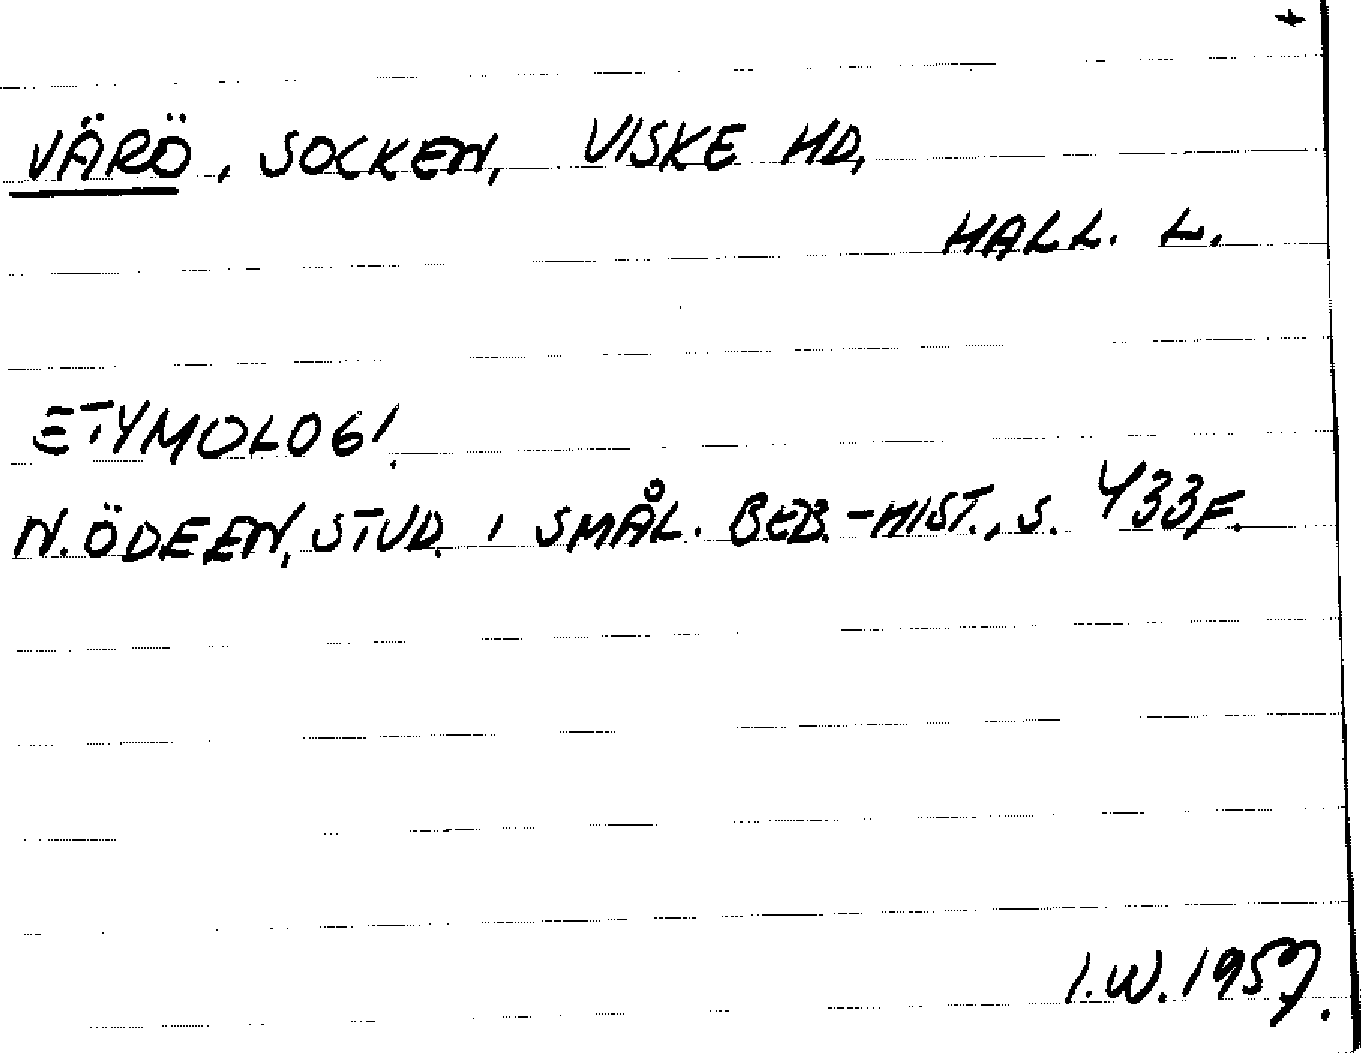 VÄRÖ, SOCKEN, VISKE HD,
HALL. L.
ETYMOLOGI.
N. ÖDEEN, STUD. I SMÅL. BEB.-HIST., S. 433F.
I.W. 1957.